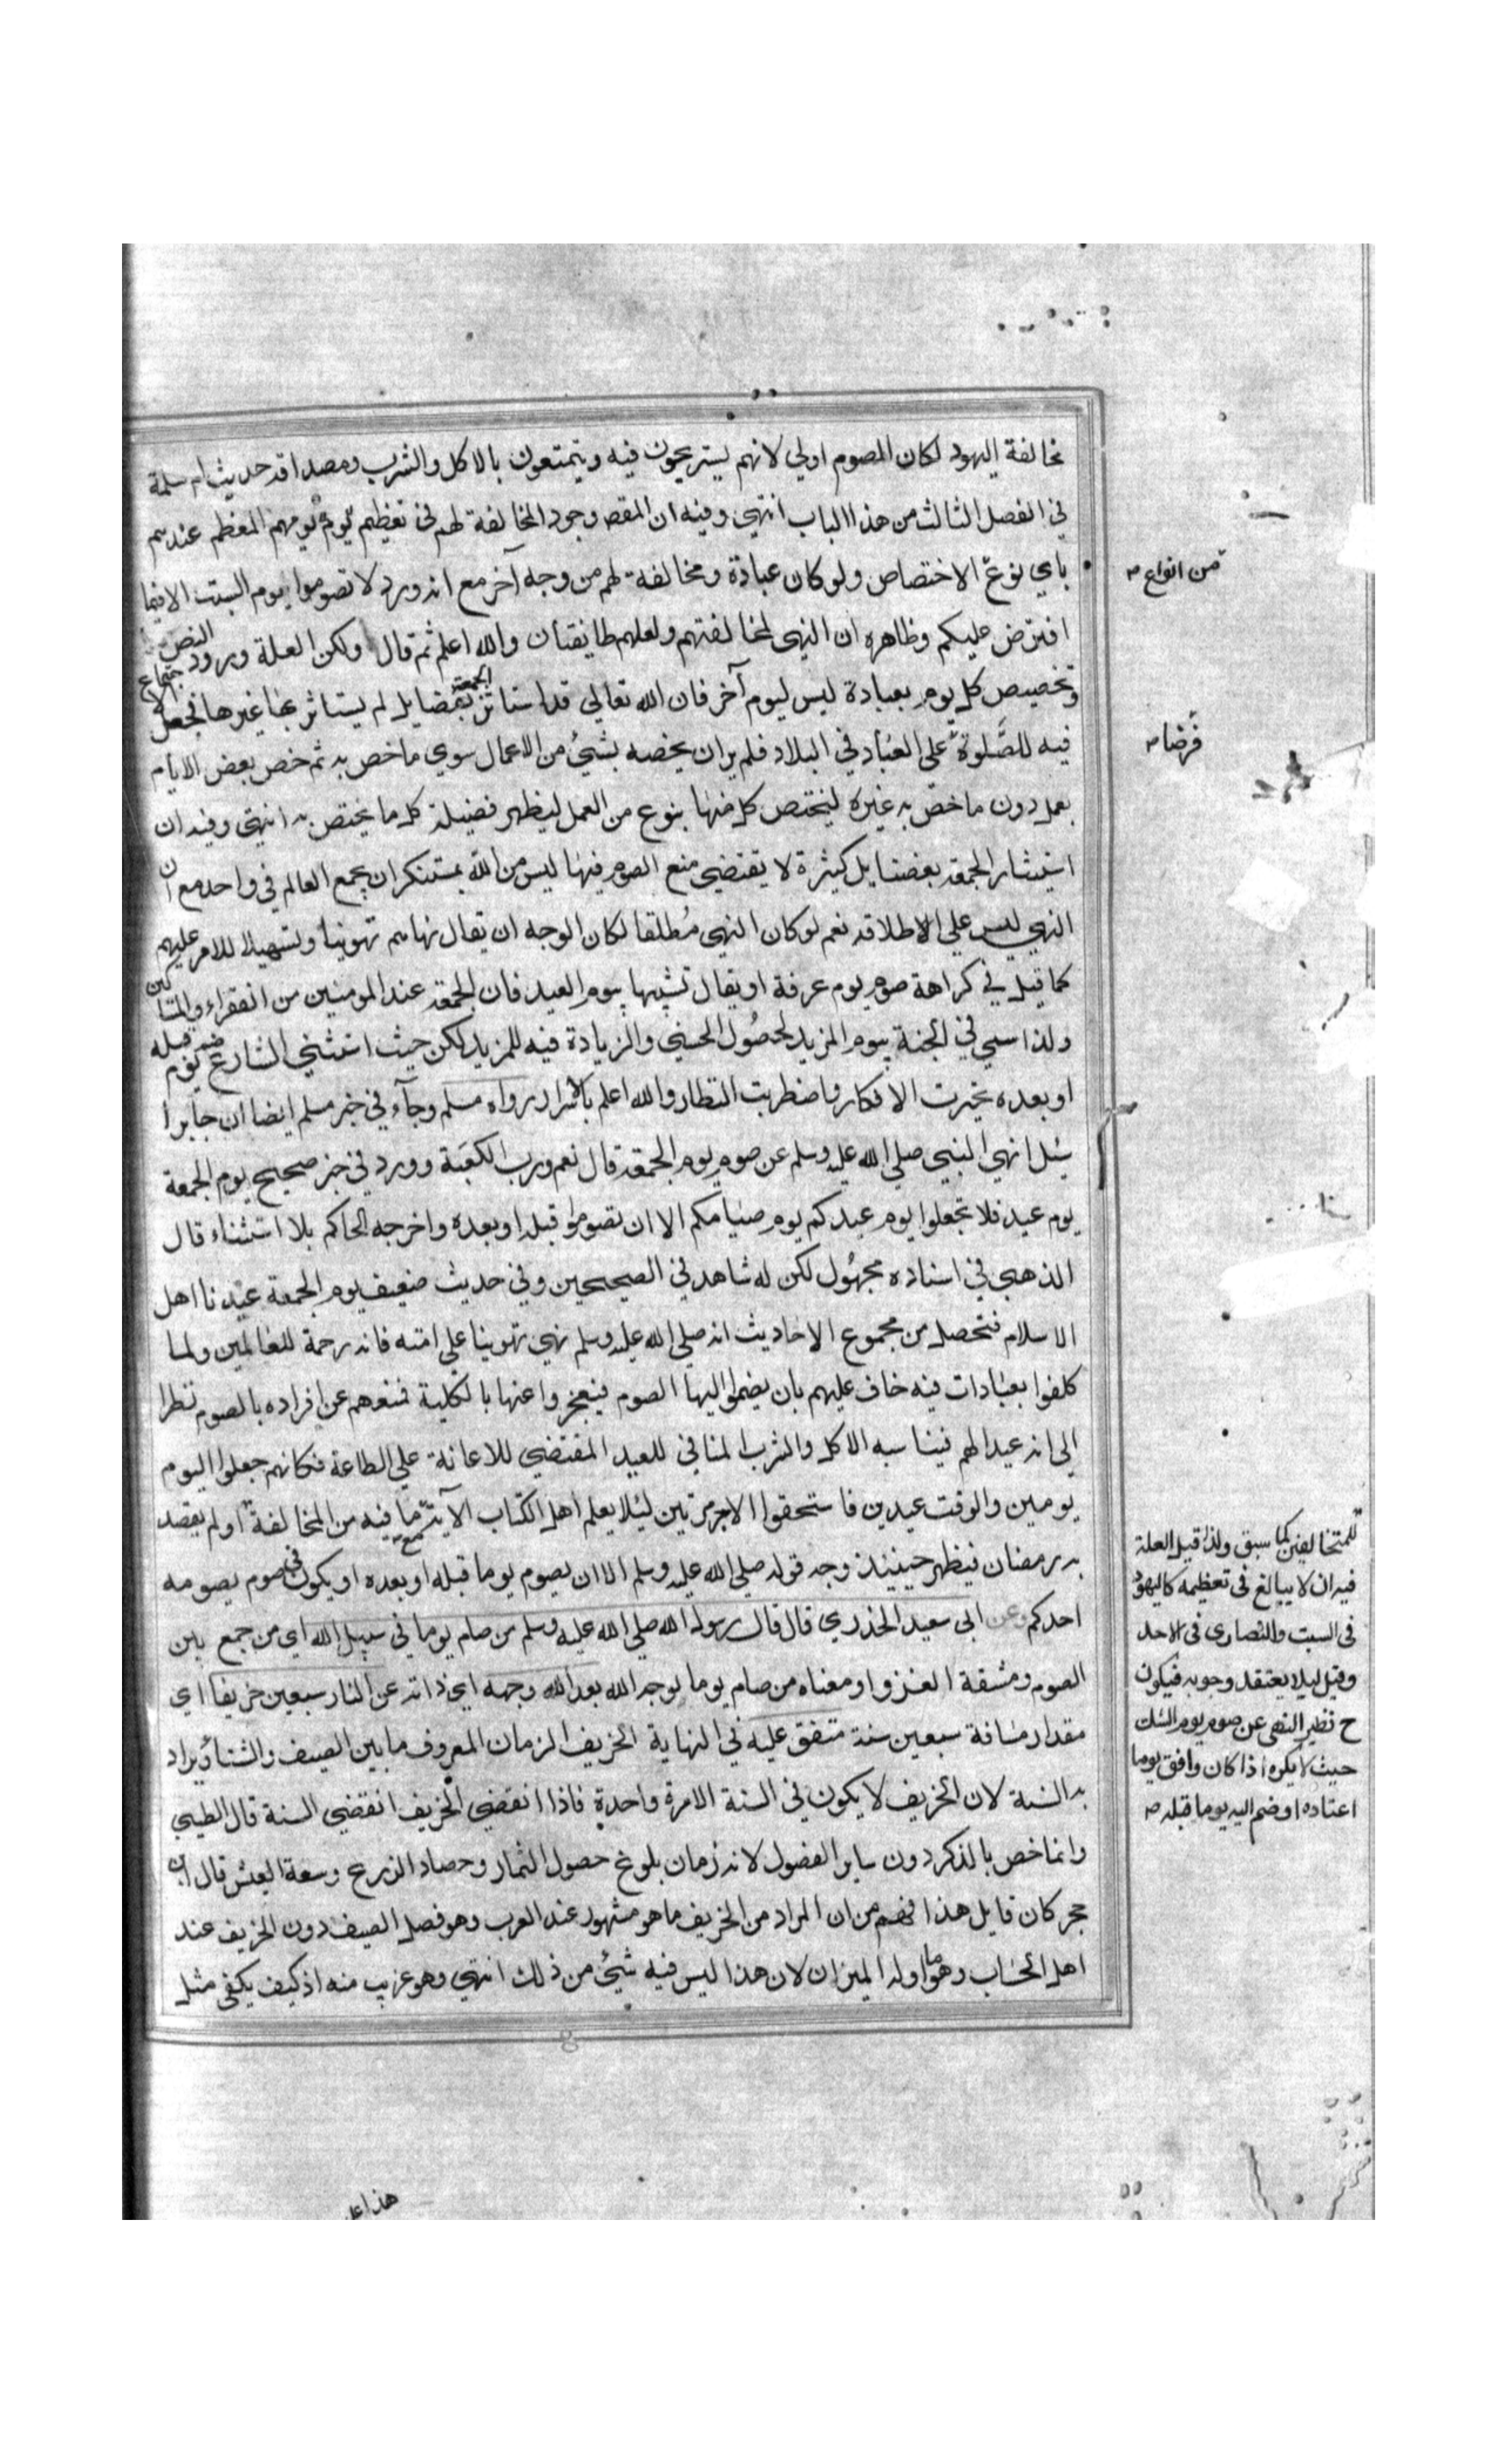 مخالفة اليهود لكان الصوم اولي لانهم يستريحون فيه ويتمتعون بالاكل والشرب ومصداقه حديث ام سلمة
في الفصل الثالث من هذا الباب انتهي وفيه ان المقص وجود المخالفة لهم في تعظيم يوم يومهم المعظم عندهم
باي نوع الاختصاص ولو كان عبادة ومخالفة لهم من وجه آخر مع انه ورد لا تصوموا يوم السبت الا فيما
افترض عليكم وظاهره ان النهي لمخالفتهم ولعلهم طائفتان والله اعلم ثم قال ولكن العلة ورود النص
وتخصيص كل يوم بعبادة ليس ليوم آخر فان الله تعالي قد استاثر الجمعة بفضايل لم يستاثر بها غيرها فجعل الاجتماع
فيه للصلوة علي العباد في البلاد فلم ير ان يخصه بشئ من الاعمال سوي ما خص به ثم خص بعض الايام
بعمل دون ما خص به غيره ليختص كل منها بنوع من العمل ليظهر فضيلة كل ما يختص به انتهي وفيه ان
استيثار الجمعة بفضايل كثيرة لا يقتضي منع الصوم فيها ليس من الله بمستنكر ان يجمع العالم في واحد مع ان
النهي ليس علي الاطلاق نعم لو كان النهي مطلقا لكان الوجه ان يقال نهاهم تهوينا وتسهيلا للامر عليهم
كما قيل في كراهة صوم يوم عرفة او يقال تشبيها بيوم العيد فان الجمعة عند المومنين من الفقراء والمساكين
ولذا سمي في الجنة بيوم المزيد لحصول الحسني والزيادة فيه للمزيد لكن حيث استثني الشارع ضم يوم قبله
او بعده تحيرت الافكار واضطربت النظار والله اعلم بالاسرار رواه مسلم وجاء في خبر مسلم ايضا ان جابرا
سئل انهي النبي صلي الله عليه وسلم عن صوم يوم الجمعة قال نعم ورب الكعبة وورد في خبر صحيح يوم الجمعة
يوم عيد فلا تجعلوا يوم عيدكم يوم صيامكم الا ان تصوموا قبله او بعده واخرجه الحاكم بلا استثناء قال
الذهبي في اسناده مجهول لكن له شاهد في الصحيحين وفي حديث ضعيف يوم الجمعة عيدنا اهل
الاسلام فتحصل من مجموع الاحاديث انه صلي الله عليه وسلم نهي تهوينا علي امته فانه رحمة للعالمين ولما
كلفوا بعبادات فيه خاف عليهم بان يضموا اليها الصوم فيعجزوا عنها بالكلية فمنعهم عن افراده بالصوم نظرا
الي انه عيد لهم فيناسبه الاكل والشرب المنافي للعيد المقتضي للاعانة علي الطاعة فكانهم جعلوا اليوم
يومين والوقت عيدين فاستحقوا الاجر مرتين ليلا يعلم اهل الكتاب الآية مع ما فيه من المخالفة او لم يقصد
به رمضان فيظهر حينيذ وجه قوله صلي الله عليه وسلم الا ان يصوم يوما قبله او بعده او يكون في صوم يصومه
احدكم وعن ابي سعيد الخدري قال قال رسول الله صلي الله عليه وسلم من صام يوما في سبيل الله اي من جمع بين
الصوم ومشقة الغزو او معناه من صام يوما لوجه الله بعد الله وجهه اي ذاته عن النار سبعين خريفا اي
مقدار مسافة سبعين سنة متفق عليه في النهاية الخريف الزمان المعروف ما بين الصيف والشتاء ويراد
به السنة لان الخريف لا يكون في السنة الا مرة واحدة فاذا انقضي الخريف انقضي السنة قال الطيبي
وانما خص بالذكر دون ساير الفصول لانه زمان بلوغ حصول الثمار وحصاد الزرع وسعة العيش قال ابن
حجر كان قايل هذا فهم من ان المراد من الخريف ما هو مشهور عند العرب وهو فصل الصيف دون الخريف عند
اهل الحساب وهو ما اوله الميزان لان هذا ليس فيه شئ من ذلك انتهي وهو غريب منه اذ كيف يكفي مثل
من انواع صح
فرضا صح
للمتخالفين كما سبق ولذا قيل العلة
فيه ان لا يبالغ في تعظيمه كاليهود
في السبت والنصاري في الاحد
وقيل ليلا يعتقد وجوبه فيكون
ح نظير النهي عن صوم يوم الشك
حيث لا يكره اذا كان وافق يوما
اعتاده او ضم اليه يوما قبله صح